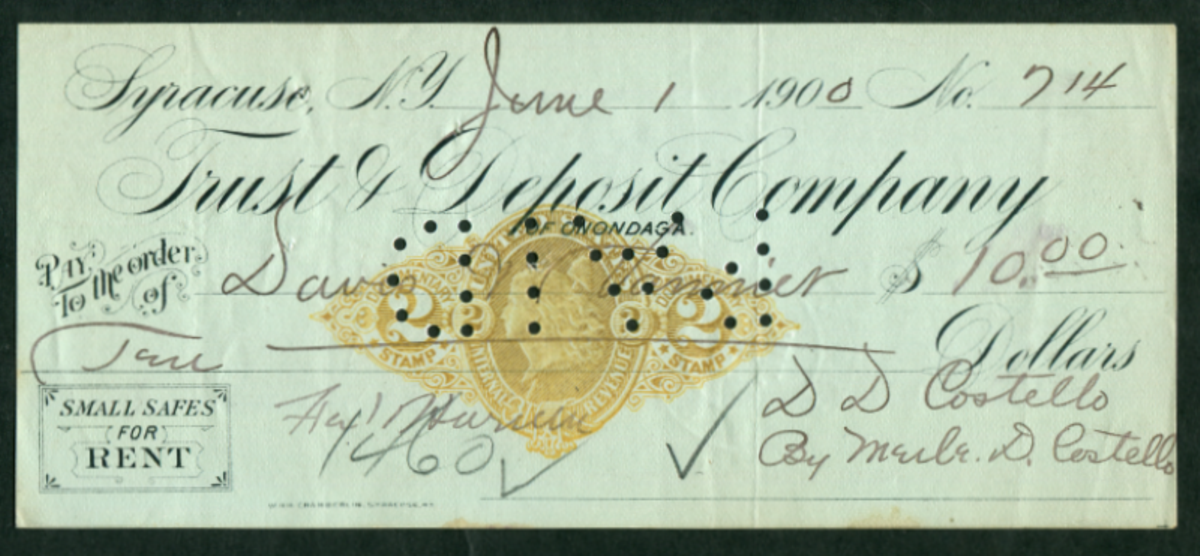 Syracuse, N.Y. June 1 1900 No. 714
Trust & Deposit Company
OF ONONDAGA.
PAY to the order of Davis $ 10.00
Ten Dollars
DOCUMENTARY
2 2
STAMP STAMP
INTERNAL REVENUE
SMALL SAFES
FOR
RENT
1460
D D Costello
By Merle. D. Costello